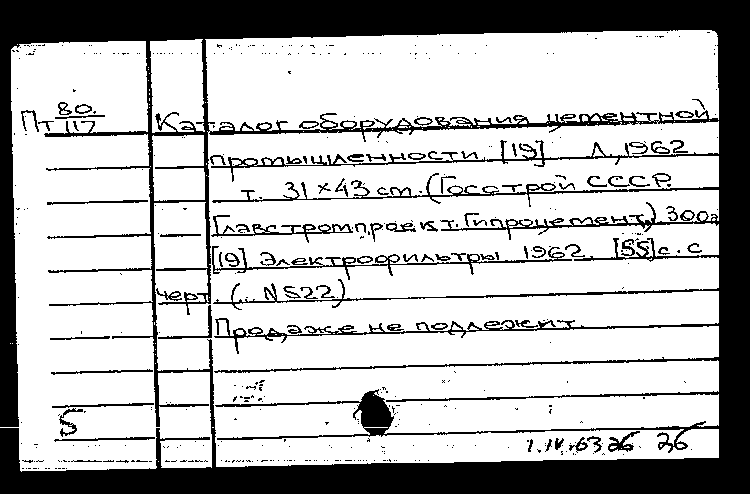 Пт 80./117 Каталог оборудования цементной
промышленности. [19] Л., 1962
т. 31×43 cm. (Госстрой СССР.
Главстромпроект. Гипроцемент.) 300э
[19] Электрофильтры. 1962. [55] с. с
черт. (.. N 522)
Продаже не подлежит.
S
1.IV.63 26 26